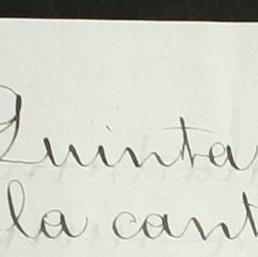 Quinta
la cant